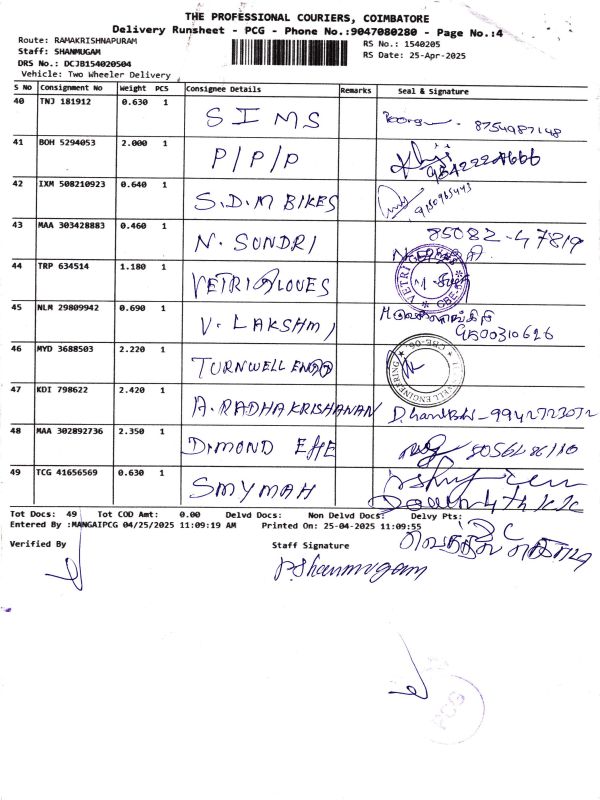 THE PROFESSIONAL COURIERS, COIMBATORE
Delivery Runsheet - PCG - Phone No.:9047080280 - Page No.:4
Route: RAMAKRISHNAPURAM
Staff: SHANMUGAM
DRS No.: DCJB154020504
Vehicle: Two Wheeler Delivery
RS No.: 1540205
RS Date: 25-Apr-2025
S No Consignment No Weight PCS Consignee Details Remarks Seal & Signature
40 TNJ 181912 0.630 1 SIMS 8754987148
41 BOH 5294053 2.000 1 P/P/P
42 IXM 508210923 0.640 1 S.D.M BIKES 9150965443
43 MAA 303428883 0.460 1 N. SUNDRI 85082-47819
44 TRP 634514 1.180 1 VETRI GLOVES VETRI CBE
45 NLM 29809942 0.690 1 V. LAKSHMI 9500310626
46 MYD 3688503 2.220 1 TURNWELL ENGG CBE-06 ENGINEERING
47 KDI 798622 2.420 1 A. RADHAKRISHANAN 9942723072
48 MAA 302892736 2.350 1 DIMOND
49 TCG 41656569 0.630 1 SMYMAH
Tot Docs: 49 Tot COD Amt: 0.00 Delvd Docs: Non Delvd Docs: Delvy Pts:
Entered By :MANGAIPCG 04/25/2025 11:09:19 AM Printed On: 25-04-2025 11:09:55
Verified By Staff Signature
P.Shanmugam
PCG